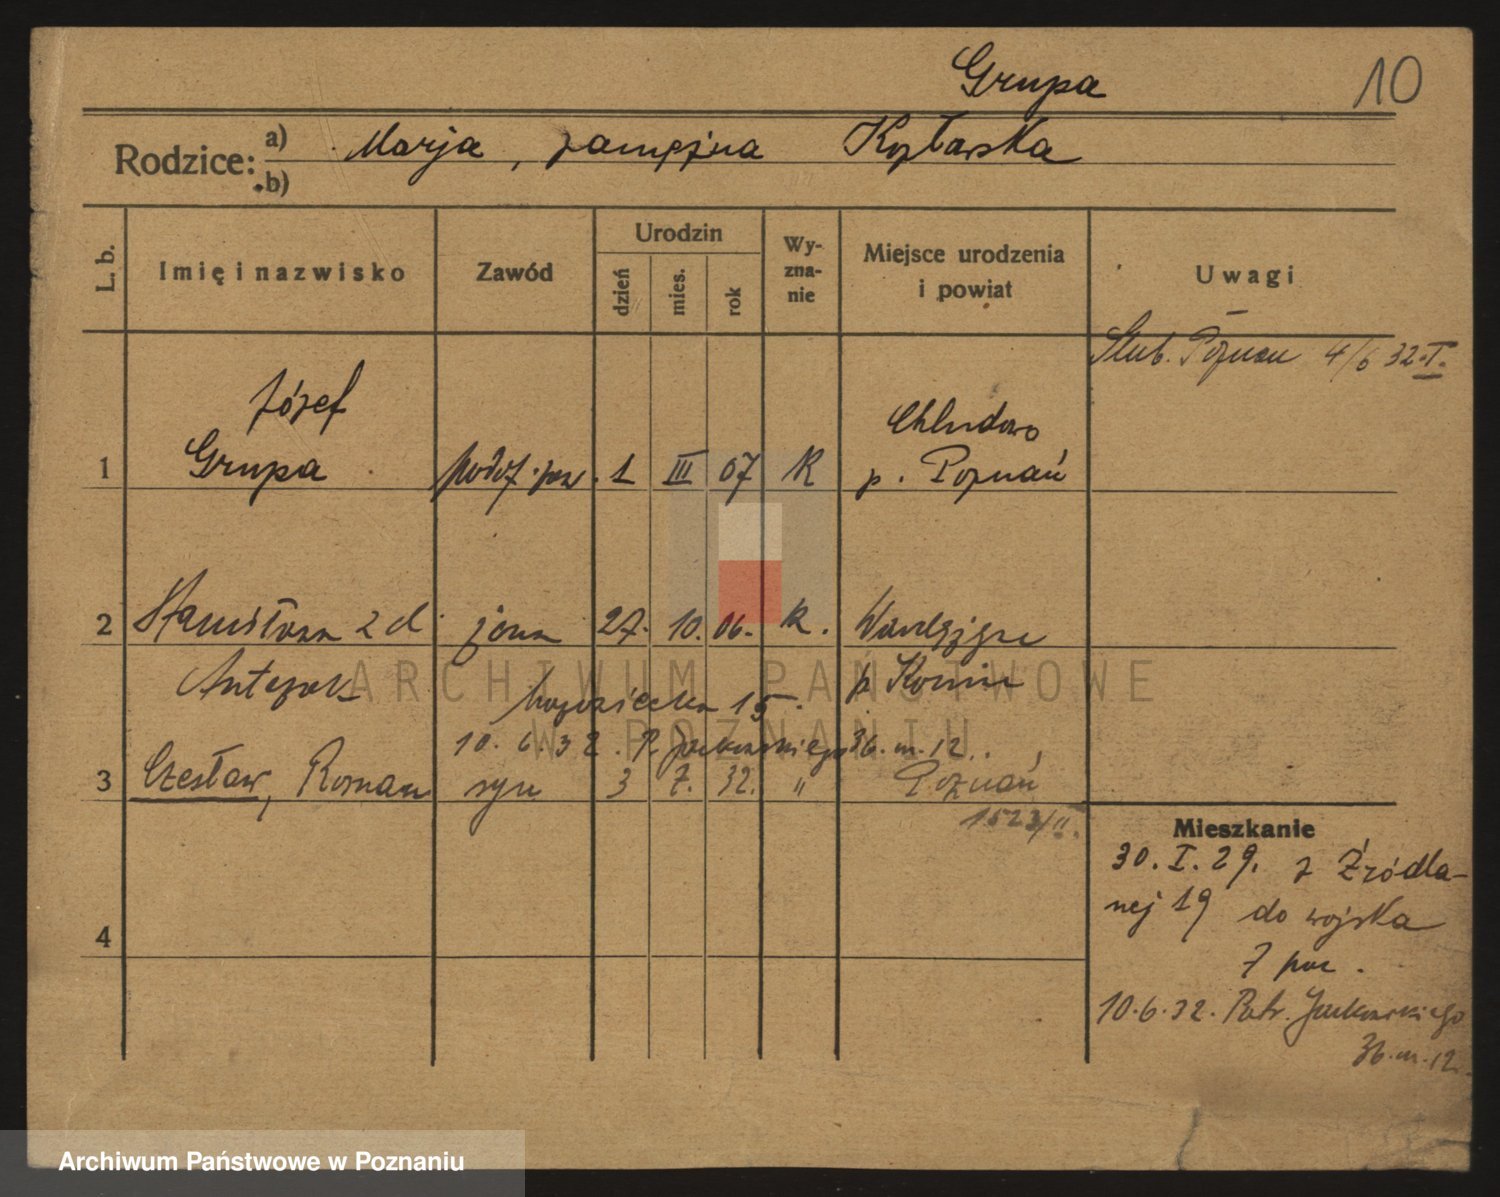 Grupa 10
Rodzice: a) Marja, zamężna Kozłarska
b)
L. b. Imię i nazwisko Zawód Urodzin dzień mies. rok Wy-zna-nie Miejsce urodzenia i powiat Uwagi
Ślub. Poznań 4/6 32. I.
Józef
Chludowo
1 Grupa podof. 1 III 07 K p. Poznań
2 Stanisława z d. żona 27. 10. 06. K.
Antczak p. Konin
15.
10. 6. 32. P. Jackowskiego 36. m. 12.
3 Czesław, Roman syn 3 7. 32. " Poznań
1523/II.
Mieszkanie
30. I. 29. z Źródla-
nej 19 do wojska
4
7 pac.
10. 6. 32. Patr. Jackowskiego
36. m. 12.
ARCHIWUM PAŃSTWOWE
W POZNANIU
Archiwum Państwowe w Poznaniu